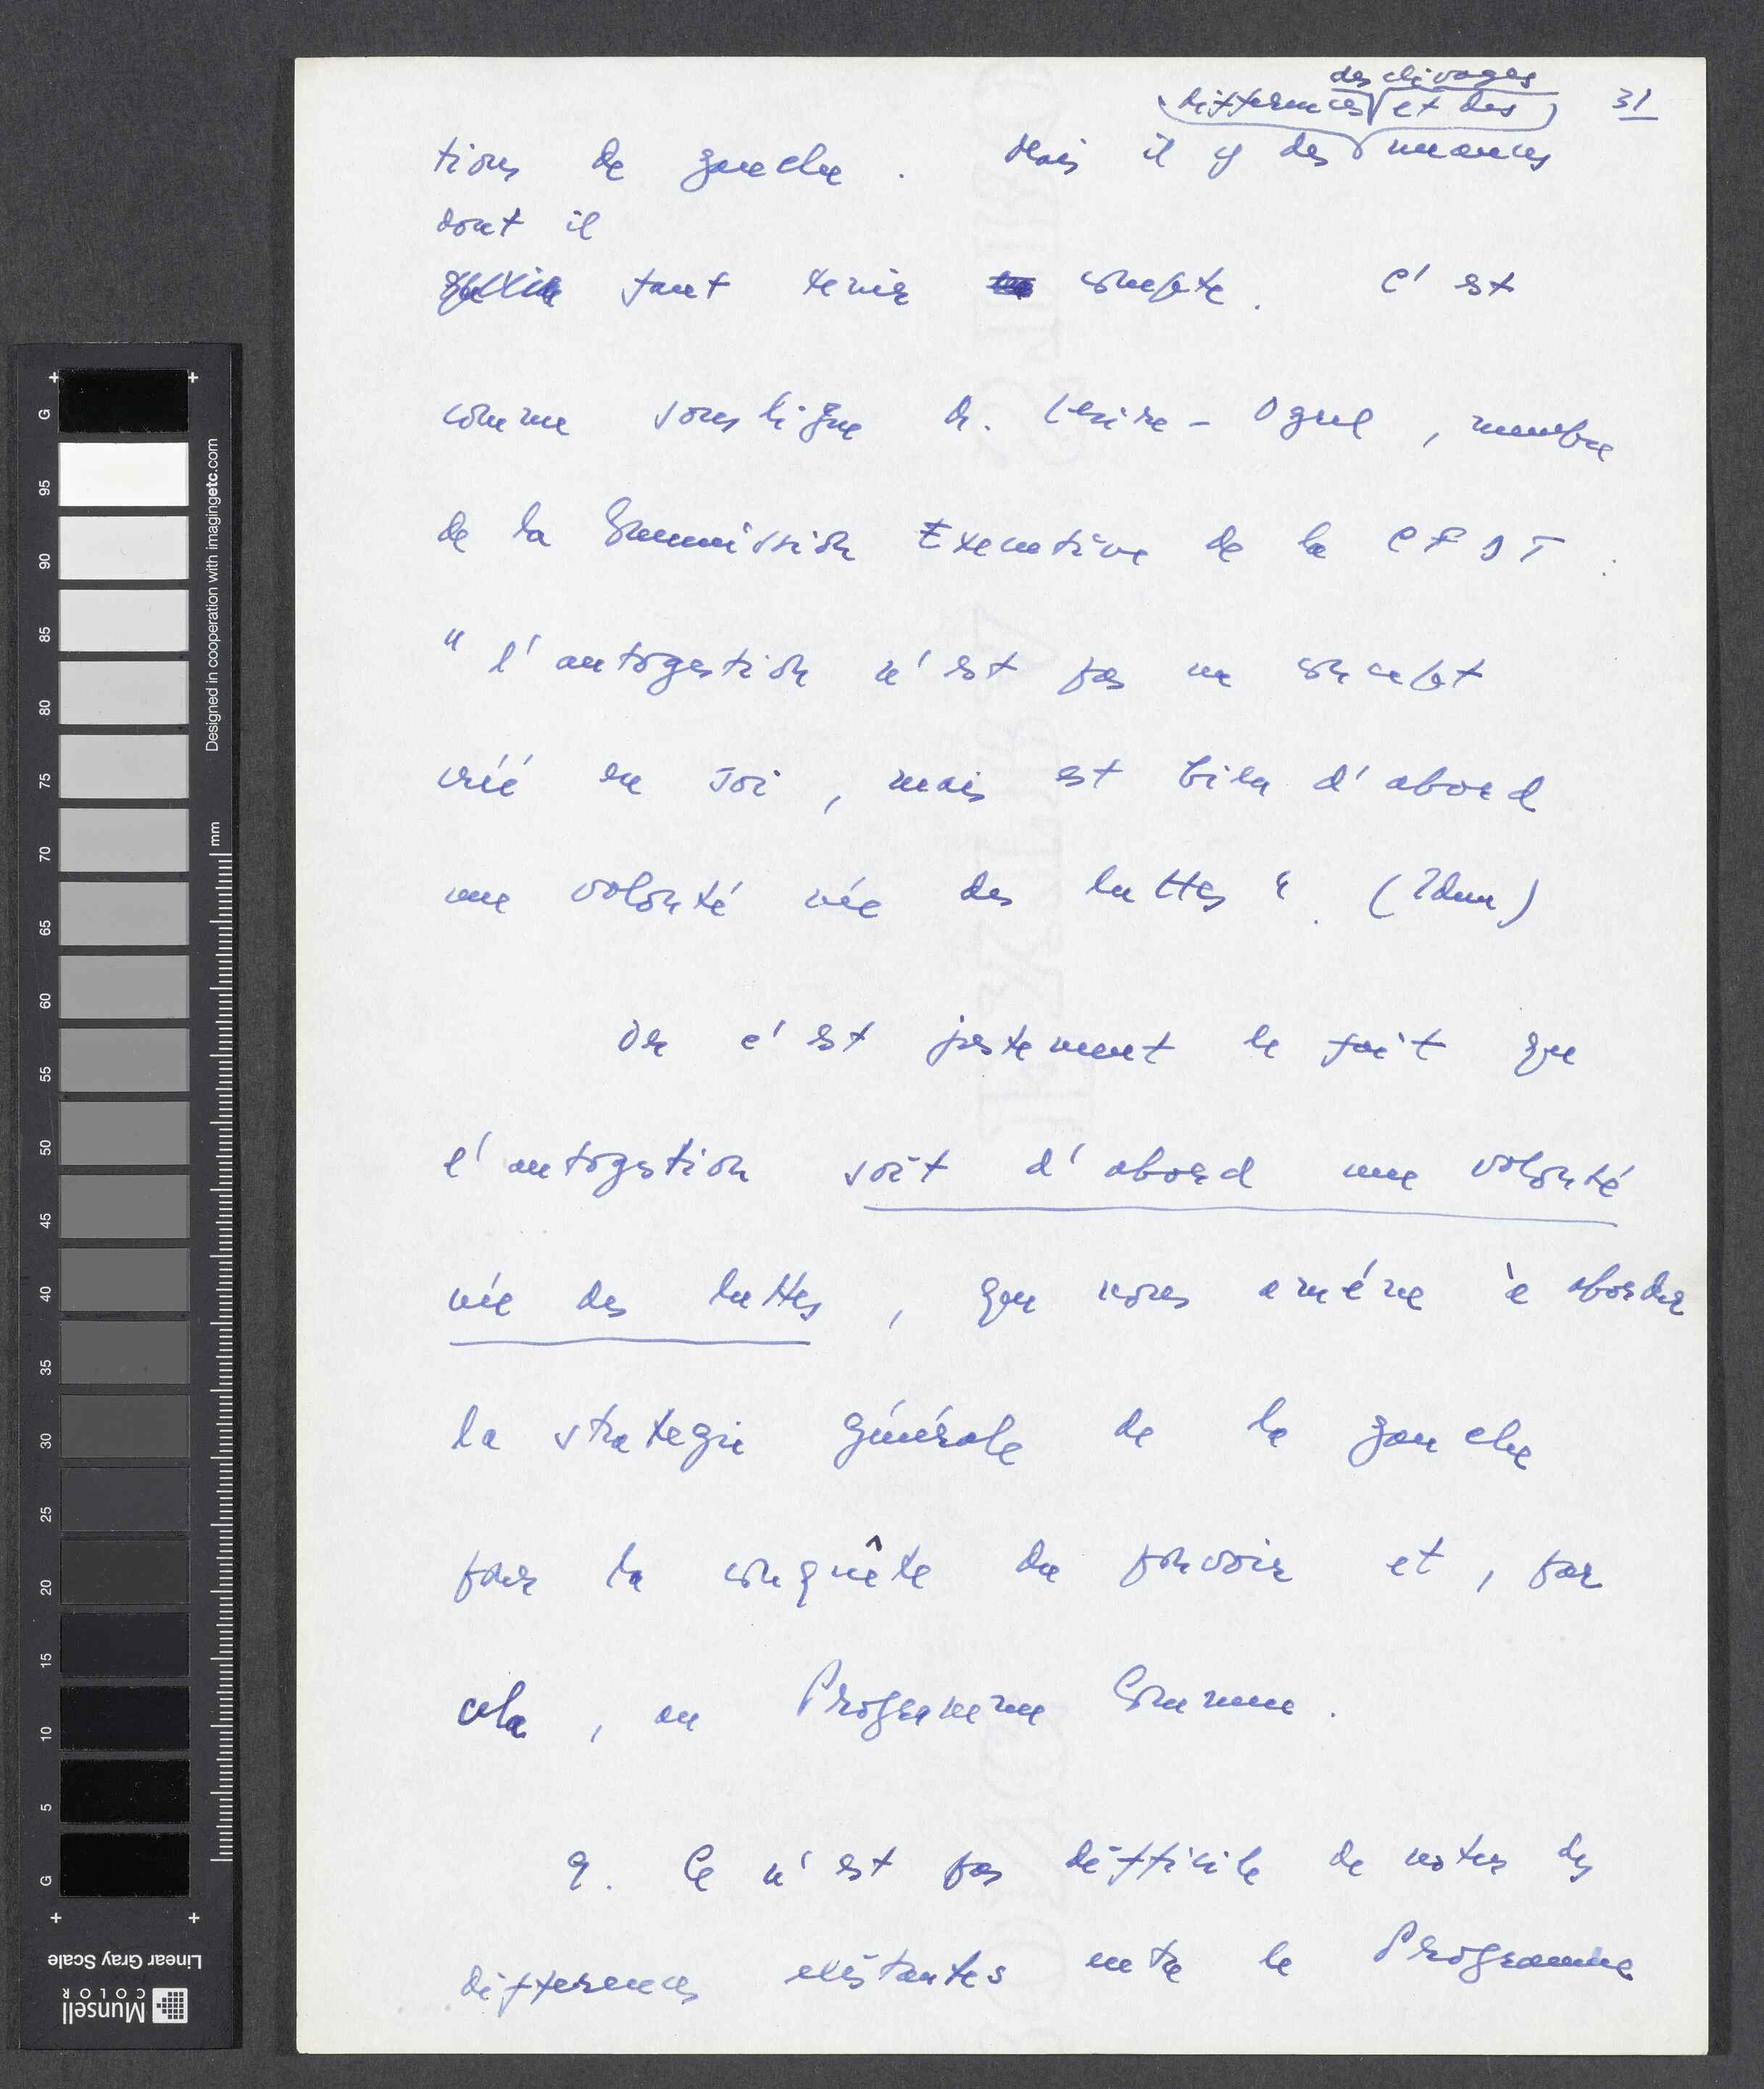 31
des clivages
differences et des
tions de gauche. Mais il y des nuances
dont il
faut tenir compte. C'est
comme souligne D. Lerire-Ogrel, membre
de la Commission Executive de la CFDT :
"l'autogestion n'est pas un concept
créé en soi, mais est bien d'abord
une volonté née des luttes". (Idem)
Or c'est justement le fait que
l'autogestion soit d'abord une volonté
née des luttes, que nous améne à aborder
la strategie générale de la gauche
pour la conquête du pouvoir et, par
cela, au Programme Commun.
9. Ce n'est pas difficile de noter des
differences existantes entre le Programme
G 95 90 85 80 75 70 65 60 55 50 45 40 35 30 25 20 15 10 5 G
mm
Designed in cooperation with imagingetc.com
Linear Gray Scale
Munsell
COLOR